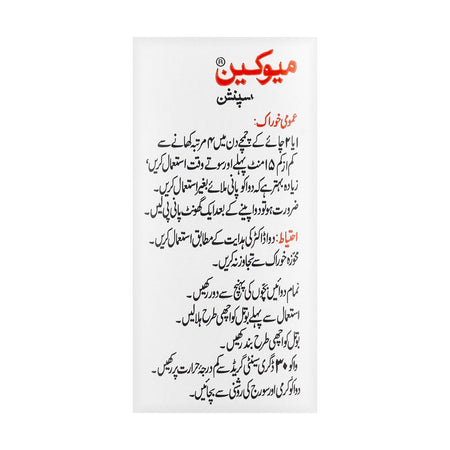 میوکین®
سپنشن
عمومی خوراک:
۱ یا ۲ چائے کے چمچے دن میں ۴ مرتبہ کھانے سے
کم از کم ۱۵ منٹ پہلے اور سوتے وقت استعمال کریں،
زیادہ بہتر ہے کہ دوا کو پانی ملائے بغیر استعمال کریں۔
ضرورت ہو تو دوا پینے کے بعد ایک گھونٹ پانی پی لیں۔
احتیاط: دوا ڈاکٹر کی ہدایت کے مطابق استعمال کریں۔
مجوزہ خوراک سے تجاوز نہ کریں۔
تمام دوائیں بچوں کی پہنچ سے دور رکھیں۔
استعمال سے پہلے بوتل کو اچھی طرح ہلالیں۔
بوتل کو اچھی طرح بند رکھیں۔
دوا کو ۳۰ ڈگری سینٹی گریڈ سے کم درجۂ حرارت پر رکھیں۔
دوا کو گرمی اور سورج کی روشنی سے بچائیں۔